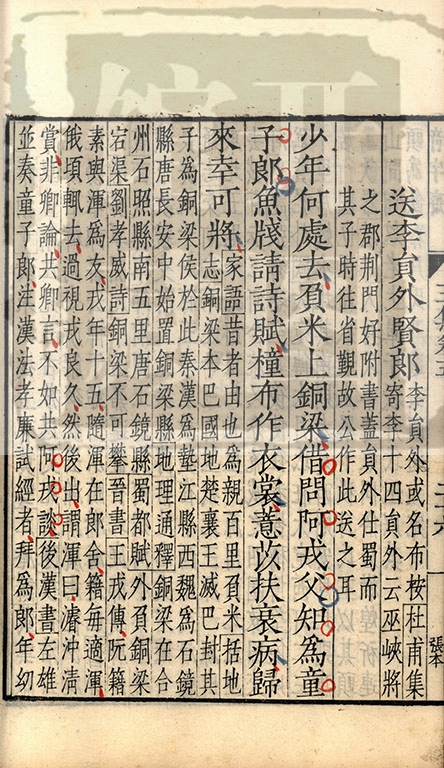 送李員外賢郎
李員外或名布桉杜甫集
寄李十四員外云巫峽將
之郡荆門好附書蓋員外仕蜀而
其子時往省覲故公作此送之耳
少年何處去負米上銅梁借問阿戎父知為童
子郎魚牋請詩賦橦布作衣裳薏苡扶衰病歸
來幸可將
家語昔者由也爲親百里負米括地
志銅梁本巴國地楚襄王滅巴封其
子爲銅梁侯於此秦漢爲墊江縣西魏爲石鏡
縣唐長安中始置銅梁縣地理通釋銅梁在合
州石照縣南五里唐石鏡縣蜀都賦外負銅梁
宕渠劉孝威詩銅梁不可攀晉書王戎傳阮籍
素與渾爲友戎年十五隨渾在郎舍籍每適渾
俄頃輒去過視戎良久然後出謂渾曰濬沖清
賞非卿論共卿言不如共阿戎談後漢書左雄
並奏童子郎注漢法孝廉試經者拜爲郎年幼